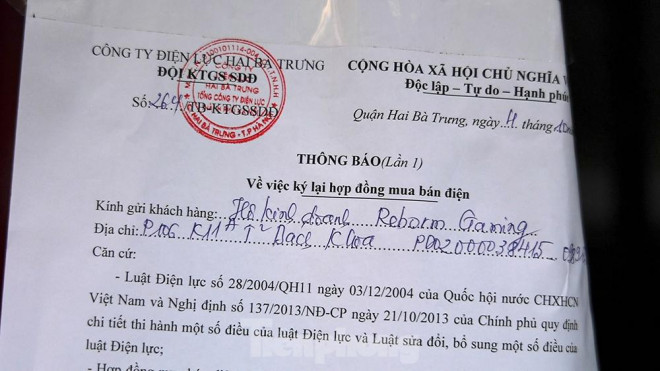 CÔNG TY ĐIỆN LỰC HAI BÀ TRƯNG
ĐỘI KTGS SDĐ
Số: 264/TB-KTGSSDĐ
CỘNG HÒA XÃ HỘI CHỦ NGHĨA
Độc lập – Tự do – Hạnh phúc
Quận Hai Bà Trưng, ngày 11 tháng 10
THÔNG BÁO(Lần 1)
Về việc ký lại hợp đồng mua bán điện
Kính gửi khách hàng: Hộ kinh doanh Reborm Gaming
Địa chỉ: P106 K11A T² Bach Khoa PD02000038415
Căn cứ:
- Luật Điện lực số 28/2004/QH11 ngày 03/12/2004 của Quốc hội nước CHXHCN
Việt Nam và Nghị định số 137/2013/NĐ-CP ngày 21/10/2013 của Chính phủ quy định
chi tiết thi hành một số điều của luật Điện lực và Luật sửa đổi, bổ sung một số điều của
luật Điện lực;